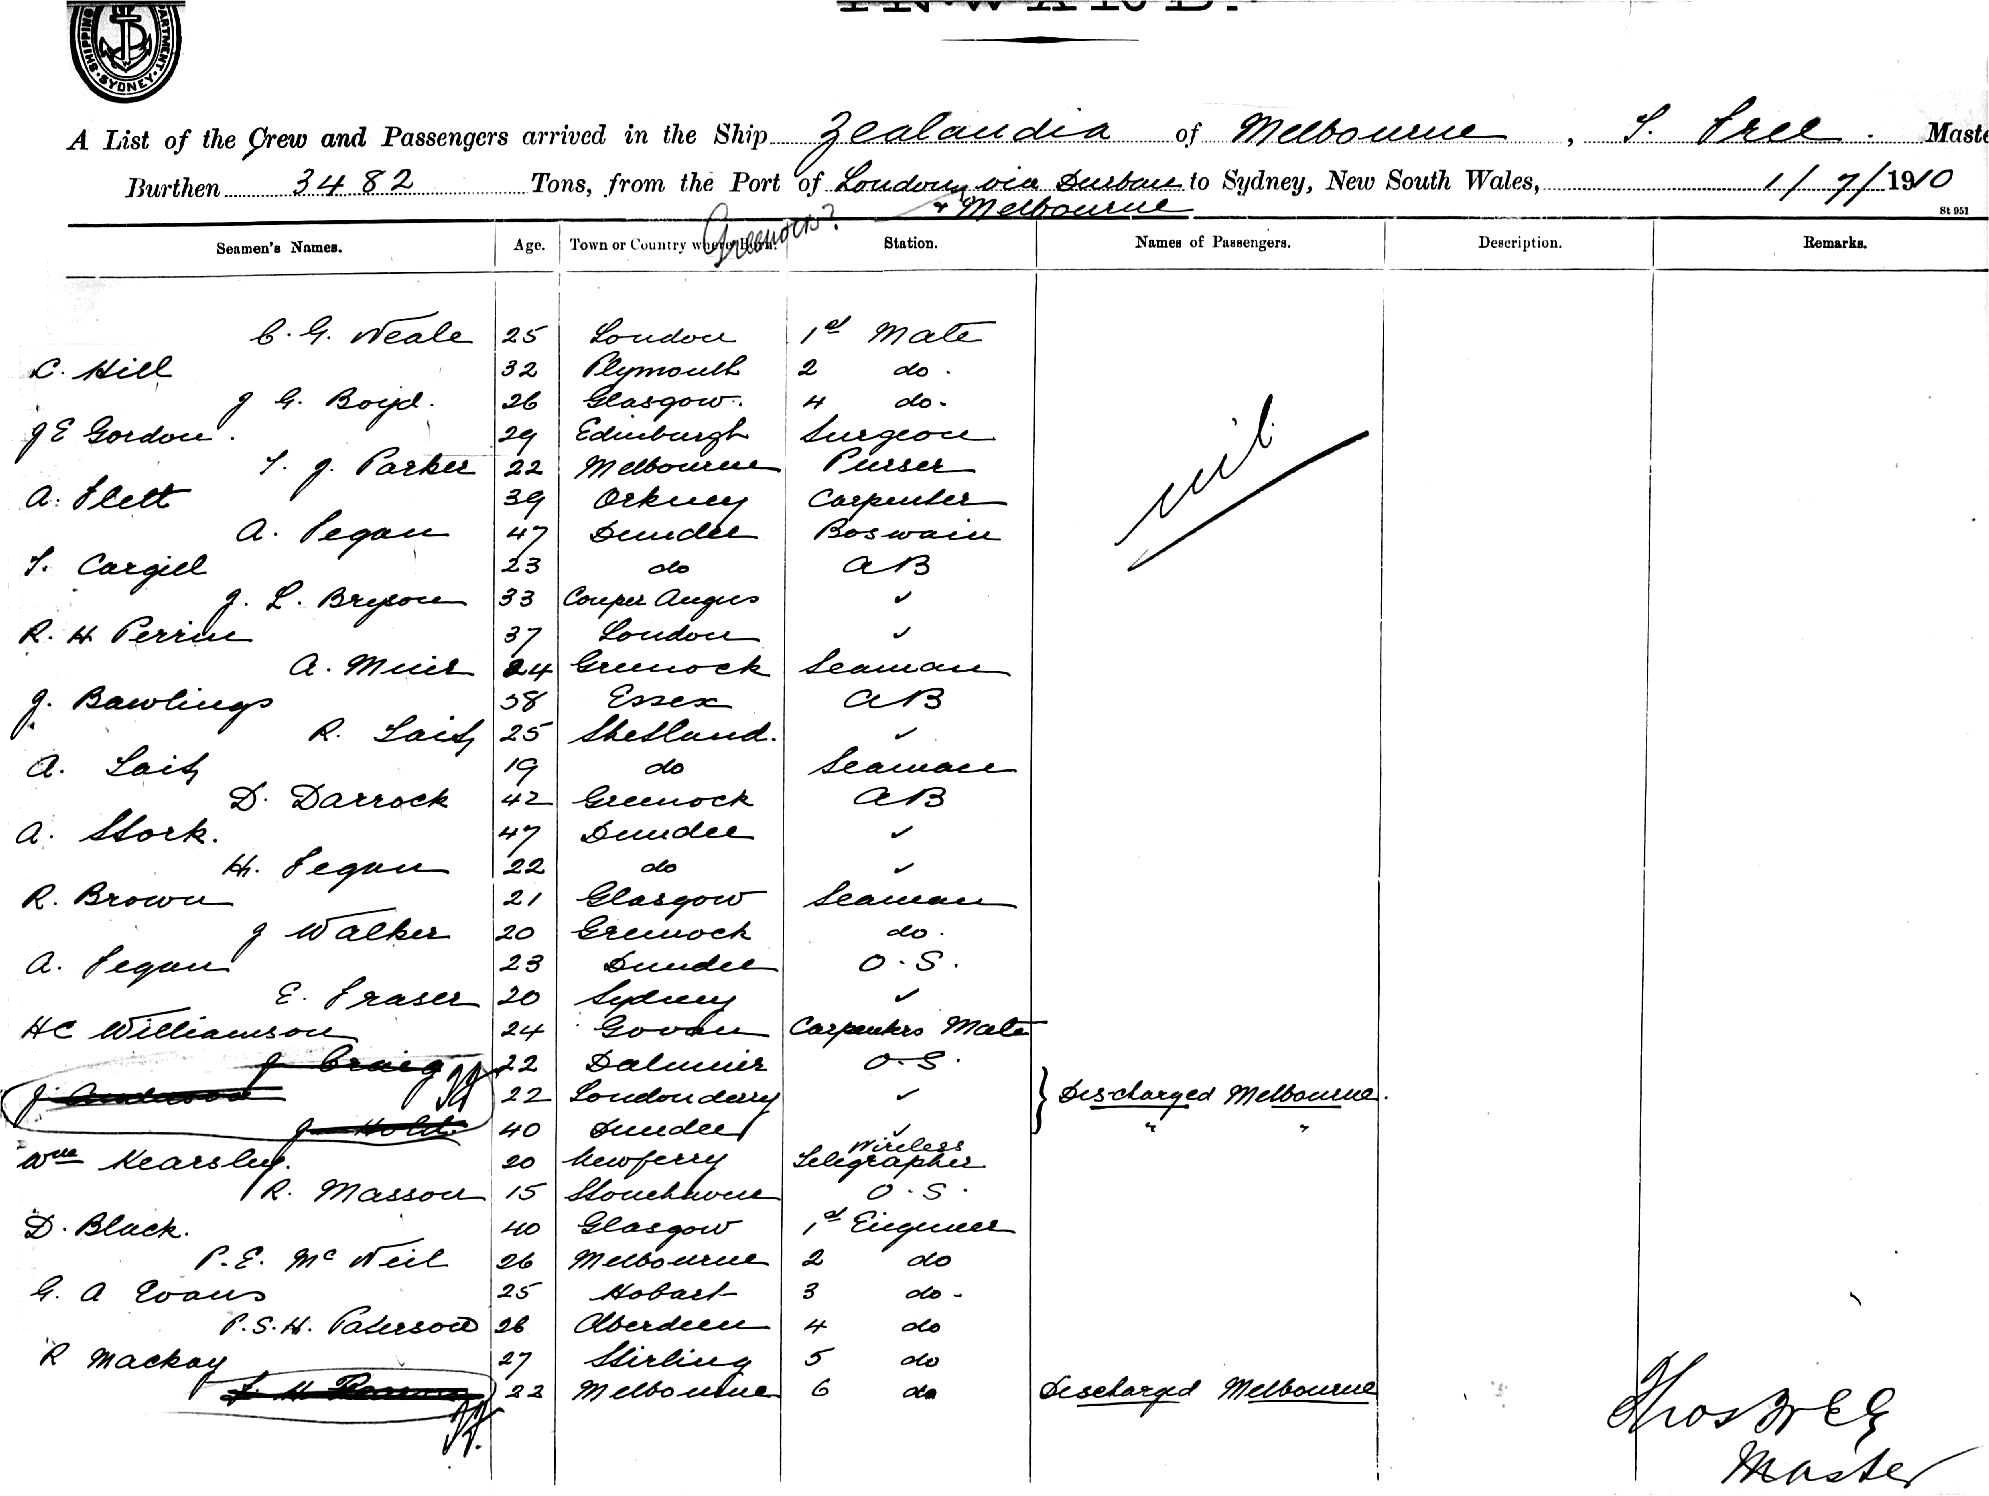 SHIPPING DEPARTMENT SYDNEY
INWARD.
A List of the Crew and Passengers arrived in the Ship Zealandia of Melbourne, T. Free. Maste
Burthen 3482 Tons, from the Port of London via Durban to Sydney, New South Wales, 1/7/1910
& Melbourne
St 951
Greenock?
Seamen's Names. Age. Town or Country where Born. Station. Names of Passengers. Description. Remarks.
C. G. Neale 25 London 1st Mate
C. Hill 32 Plymouth 2 do.
J G. Boyd. 26 Glasgow. 4 do.
J E Gordon. 29 Edinburgh Surgeon
nil
T. J. Parker 22 Melbourne Purser
A. Flett 39 Orkney Carpenter
A. Fegan 47 Dundee Boswain
T. Cargill 23 do AB
J. L. Bryson 33 Couper Angus ✓
R. H Perrin 37 London ✓
A. Muir 24 Greenock Seaman
J. Bawlings 58 Essex AB
R. Laith 25 Shetland. ✓
A. Laith 19 do Seaman
D. Darrock 42 Greenock AB
A. Stork. 47 Dundee ✓
H. Fegan 22 do ✓
R. Brown 21 Glasgow Seaman
J Walker 20 Greenock do.
A. Fegan 23 Dundee O.S.
E. Fraser 20 Sydney ✓
HC Williamson 24 Govan Carpenters Mate
J Craig 22 Dalmuir O.S.
J Anderson 22 Londonderry ✓ } Discharged Melbourne.
J Hold 40 Dundee ✓ " "
Wm Kearsley. 20 Newferry Wireless Telegrapher
R. Masson 15 Stonehaven O.S.
D. Black. 40 Glasgow 1st Engineer
P. E. McNeil 26 Melbourne 2 do
G. A Evans 25 Hobart 3 do.
P.S.H. Paterson 26 Aberdeen 4 do
R Mackay 27 Stirling 5 do
22 Melbourne 6 do Discharged Melbourne
Thos Free
Master